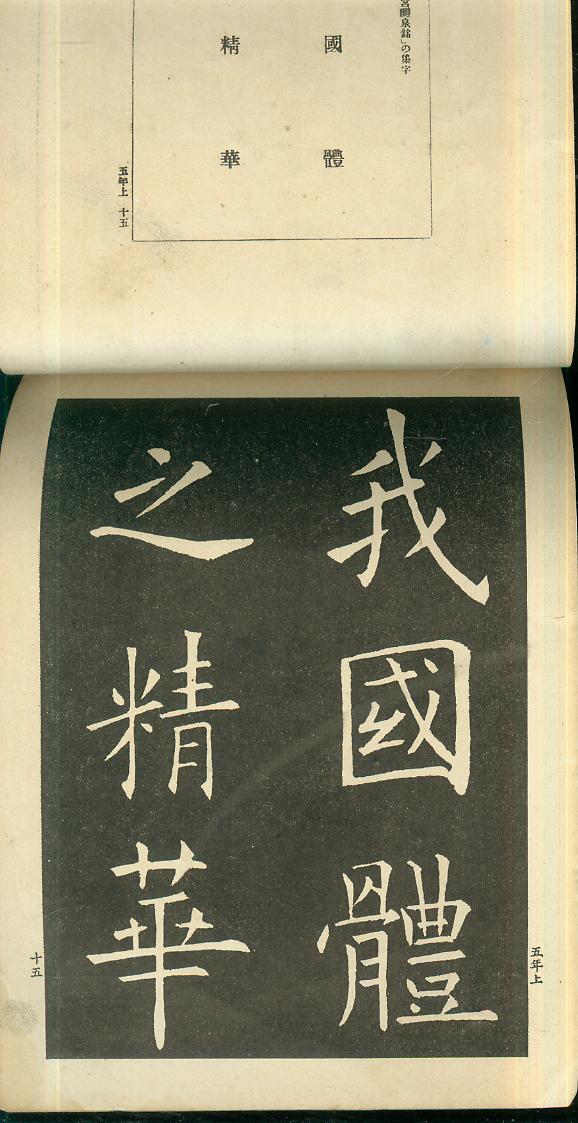 宮醴泉銘」の集字
國體
精華
五年上 十五
我國體
之精華
五年上
十五